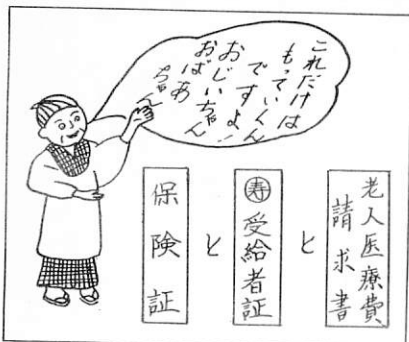 これだけは
もっていくん
ですよ!
おじいちゃん
おばあ
ちゃん
老人医療費
請求書
と
㊕受給者証
と
保険証